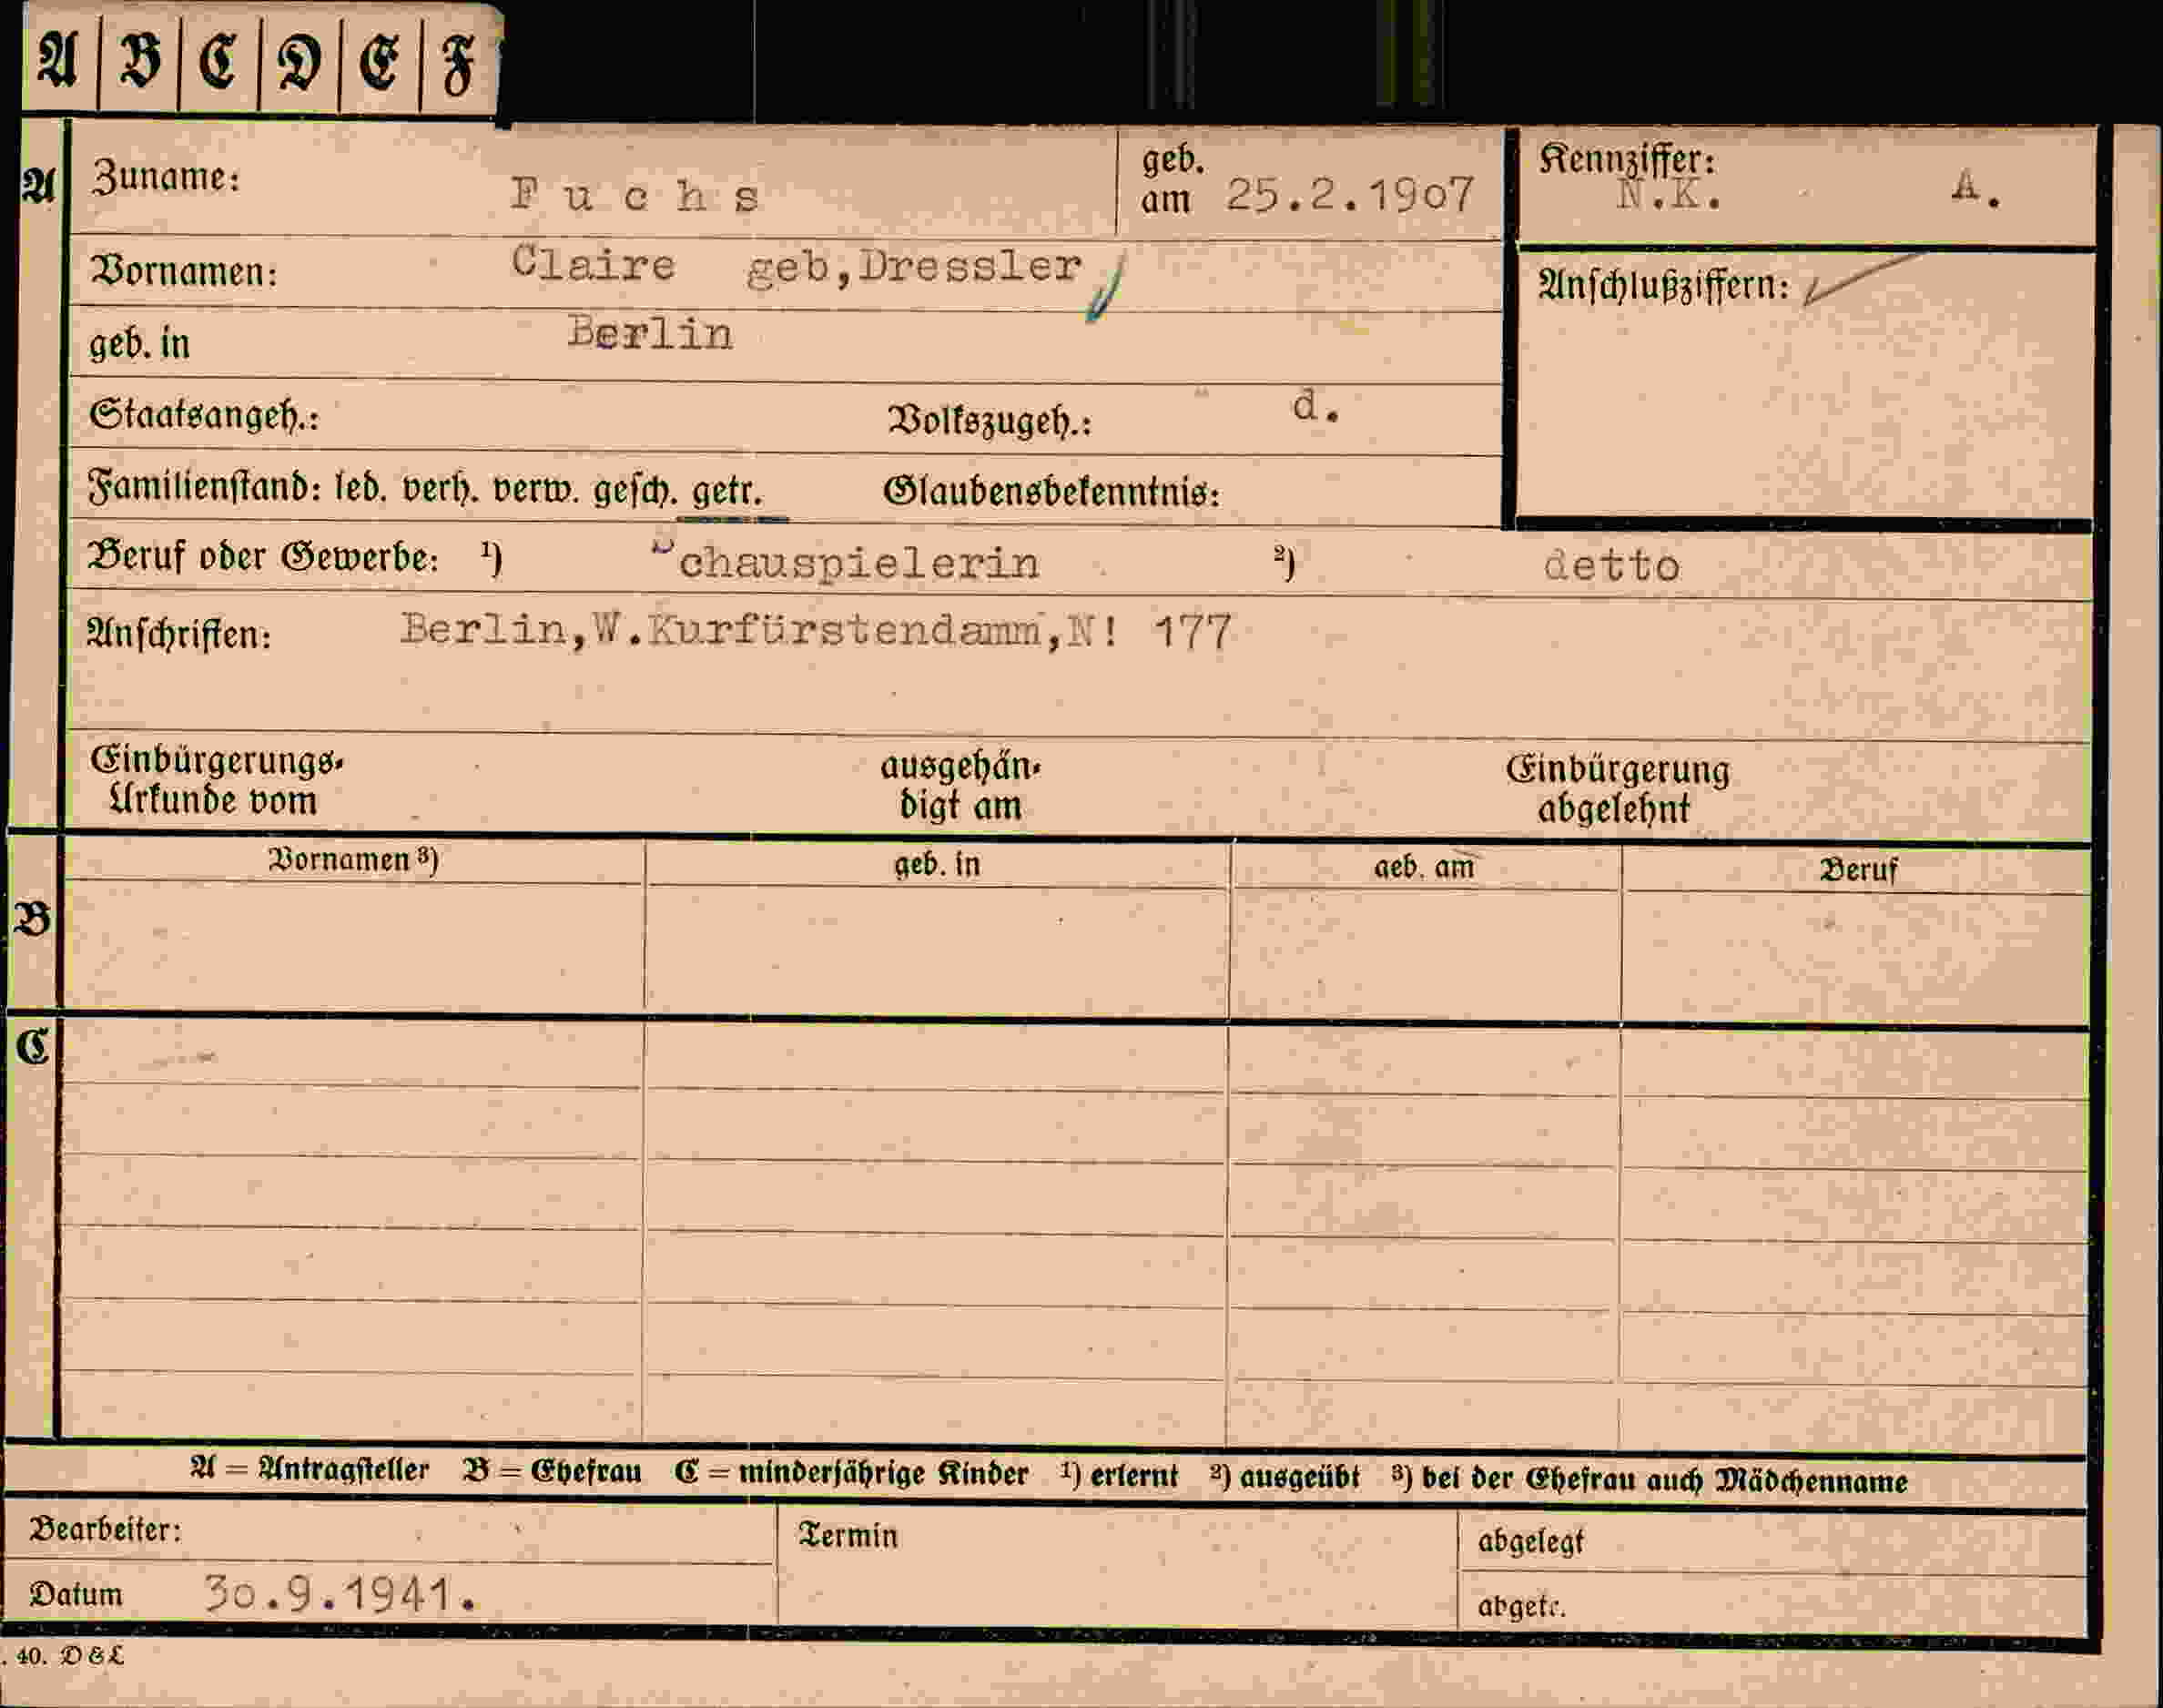 A B C D E F
A Zuname: F u c h s geb. am 25.2.1907 Kennziffer: N.K. A.
Vornamen: Claire geb,Dressler Anschlußziffern:
geb. in Berlin
Staatsangeh.: Volkszugeh.: d.
Familienstand: led. verh. verw. gesch. getr. Glaubensbekenntnis:
Beruf oder Gewerbe: ¹) Schauspielerin ²) detto
Anschriften: Berlin,W.Kurfürstendamm,N! 177
Einbürgerungs- ausgehän- Einbürgerung
Urkunde vom digt am abgelehnt
B Vornamen ³) geb. in geb. am Beruf
C
A = Antragsteller B = Ehefrau C = minderjährige Kinder ¹) erlernt ²) ausgeübt ³) bei der Ehefrau auch Mädchenname
Bearbeiter: Termin abgelegt
Datum 30.9.1941. abgetr.
. 40. D & L